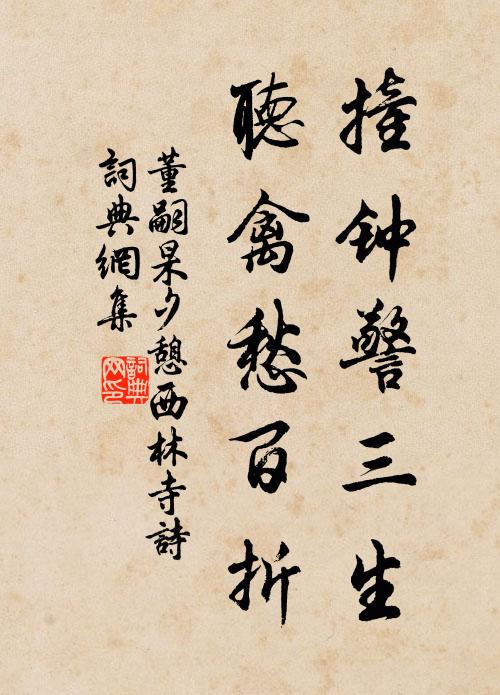 撞钟警三生
聽禽愁百折
董嗣杲夕憩西林寺詩
詞典網集
詞典网印